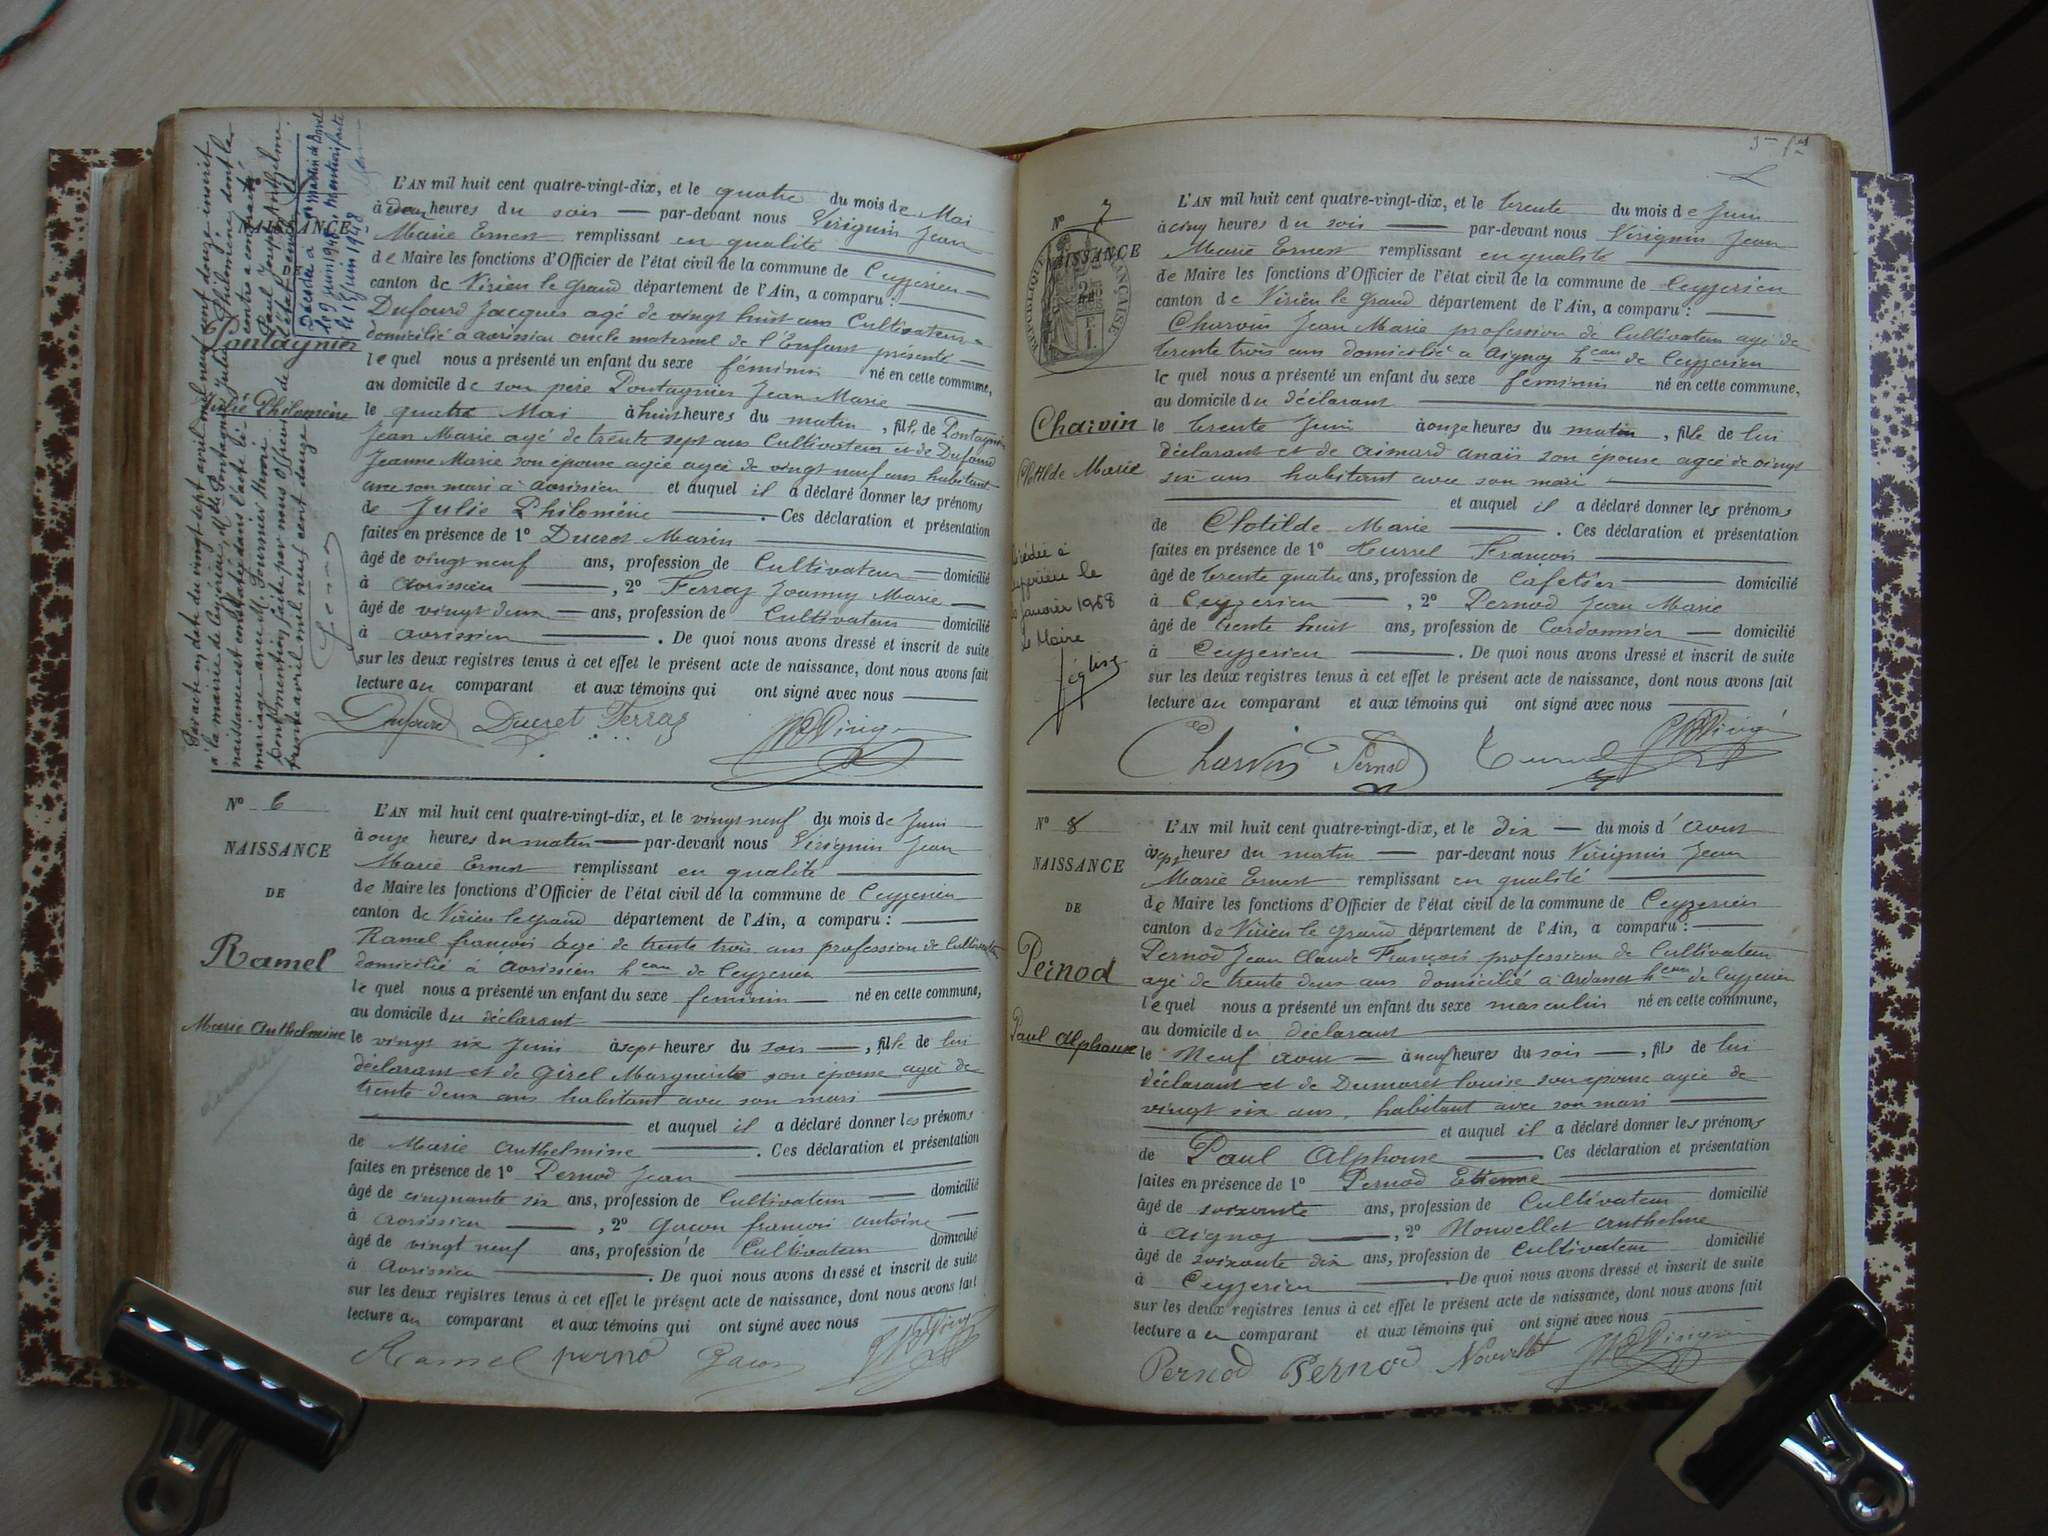 NAISSANCE
Pontagnier
Julie Philomène
Par acte en date du vingt sept avril mil neuf cent douze inscrit
à la mairie de Ceyzérieu, Melle Pontagnier Julie Philomène dont la
naissance est constatée dans l'acte ci-contre a contracté
mariage avec M. Fournier Henri Paul Joseph Anthelme
dont mention faite par nous officier de l'état civil
trente avril mil neuf cent douze
Décédée à
le 9 juin 1948, mention faite
le 15 juin 1948
L'AN mil huit cent quatre-vingt-dix, et le quatre du mois de Mai
à deux heures du soir — par-devant nous Virignin Jean
Marie Ernest remplissant en qualité
de Maire les fonctions d'Officier de l'état civil de la commune de Ceyzerieu
canton de Virieu le Grand département de l'Ain, a comparu :
Dufourd Jacques agé de vingt huit ans Cultivateur
domicilié à avrissieu oncle maternel de l'Enfant présenté
lequel nous a présenté un enfant du sexe féminin né en cette commune,
au domicile de son père Pontagnier Jean Marie
le quatre Mai à huit heures du matin, fille de Pontagnier
Jean Marie agé de trente sept ans Cultivateur et de Dufourd
Jeanne Marie son épouse agée agée de vingt neuf ans habitant
avec son mari à avrissieu et auquel il a déclaré donner les prénoms
de Julie Philomène . Ces déclaration et présentation
faites en présence de 1º Ducret Marin
âgé de vingt neuf ans, profession de Cultivateur domicilié
à avrissieu , 2º Ferraz Joanny Marie
âgé de vingt deux ans, profession de Cultivateur domicilié
à avrissieu . De quoi nous avons dressé et inscrit de suite
sur les deux registres tenus à cet effet le présent acte de naissance, dont nous avons fait
lecture au comparant et aux témoins qui ont signé avec nous
Dufourd Ducret Ferraz
Nº 6
NAISSANCE
DE
Ramel
Marie Anthelmine
décédée
L'AN mil huit cent quatre-vingt-dix, et le vingt neuf du mois de Juin
à onze heures du matin — par-devant nous Virignin Jean
Marie Ernest remplissant en qualité
de Maire les fonctions d'Officier de l'état civil de la commune de Ceyzerieu
canton de Virieu le grand département de l'Ain, a comparu :
Ramel françois agé de trente trois ans profession de Cultivateur
domicilié à avrissieu heau de Ceyzerieu
lequel nous a présenté un enfant du sexe feminin né en cette commune,
au domicile du déclarant
le vingt six Juin à sept heures du soir, fille de lui
déclarant et de Girel Marguerite son épouse agée de
trente deux ans habitant avec son mari
et auquel il a déclaré donner les prénoms
de Marie Anthelmine . Ces déclaration et présentation
faites en présence de 1º Pernod Jean
âgé de cinquante six ans, profession de Cultivateur domicilié
à avrissieu , 2º Gacon françois antoine
âgé de vingt neuf ans, profession de Cultivateur domicilié
à avrissieu . De quoi nous avons dressé et inscrit de suite
sur les deux registres tenus à cet effet le présent acte de naissance, dont nous avons fait
lecture au comparant et aux témoins qui ont signé avec nous
Ramel pernod Gacon
Nº 7
NAISSANCE
RÉPUBLIQUE FRANÇAISE
Charvin
Clotilde Marie
Décédée à
Ceyzérieu le
Janvier 1968
Le Maire
L'AN mil huit cent quatre-vingt-dix, et le trente du mois de Juin
à cinq heures du soir — par-devant nous Virignin Jean
Marie Ernest remplissant en qualité
de Maire les fonctions d'Officier de l'état civil de la commune de Ceyzerieu
canton de Virieu le Grand département de l'Ain, a comparu :
Charvin Jean Marie profession de Cultivateur agé de
trente trois ans domicilié a aignoz heau de Ceyzerieu
lequel nous a présenté un enfant du sexe feminin né en cette commune,
au domicile du déclarant
le trente Juin à onze heures du matin, fille de lui
déclarant et de aimard anaïs son épouse agée de vingt
six ans habitant avec son mari
et auquel il a déclaré donner les prénoms
de Clotilde Marie . Ces déclaration et présentation
faites en présence de 1º Hurrel François
âgé de trente quatre ans, profession de Cafetier domicilié
à Ceyzerieu , 2º Pernod Jean Marie
âgé de trente huit ans, profession de Cordonnier domicilié
à Ceyzerieu . De quoi nous avons dressé et inscrit de suite
sur les deux registres tenus à cet effet le présent acte de naissance, dont nous avons fait
lecture au comparant et aux témoins qui ont signé avec nous
Charvin Pernod
Nº 8
NAISSANCE
DE
Pernod
Paul Alphonse
L'AN mil huit cent quatre-vingt-dix, et le dix — du mois d'Aout
à sept heures du matin — par-devant nous Virignin Jean
Marie Ernest remplissant en qualité
de Maire les fonctions d'Officier de l'état civil de la commune de Ceyzerieu
canton de Virieu le grand département de l'Ain, a comparu :
Pernod Jean Claude François profession de Cultivateur
agé de trente deux ans domicilié à Ardosset heau de Ceyzerieu
lequel nous a présenté un enfant du sexe masculin né en cette commune,
au domicile du déclarant
le Neuf Aout à neuf heures du soir, fils de lui
déclarant et de Dumoret Louise son épouse agée de
vingt six ans, habitant avec son mari
et auquel il a déclaré donner les prénoms
de Paul Alphonse . Ces déclaration et présentation
faites en présence de 1º Pernod Etienne
âgé de soixante ans, profession de Cultivateur domicilié
à aignoz , 2º Nouvellet Anthelme
âgé de soixante dix ans, profession de Cultivateur domicilié
à Ceyzerieu . De quoi nous avons dressé et inscrit de suite
sur les deux registres tenus à cet effet le présent acte de naissance, dont nous avons fait
lecture a u comparant et aux témoins qui ont signé avec nous
Pernod Pernod Nouvellet